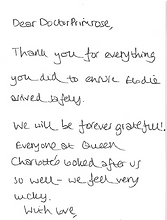 Dear Doctor Primrose,
Thank you for everything
you did to ensure Elodie
arrived safely.
We will be forever grateful!
Everyone at Queen
Charlotte's looked after us
so well - we feel very
lucky.
With love,